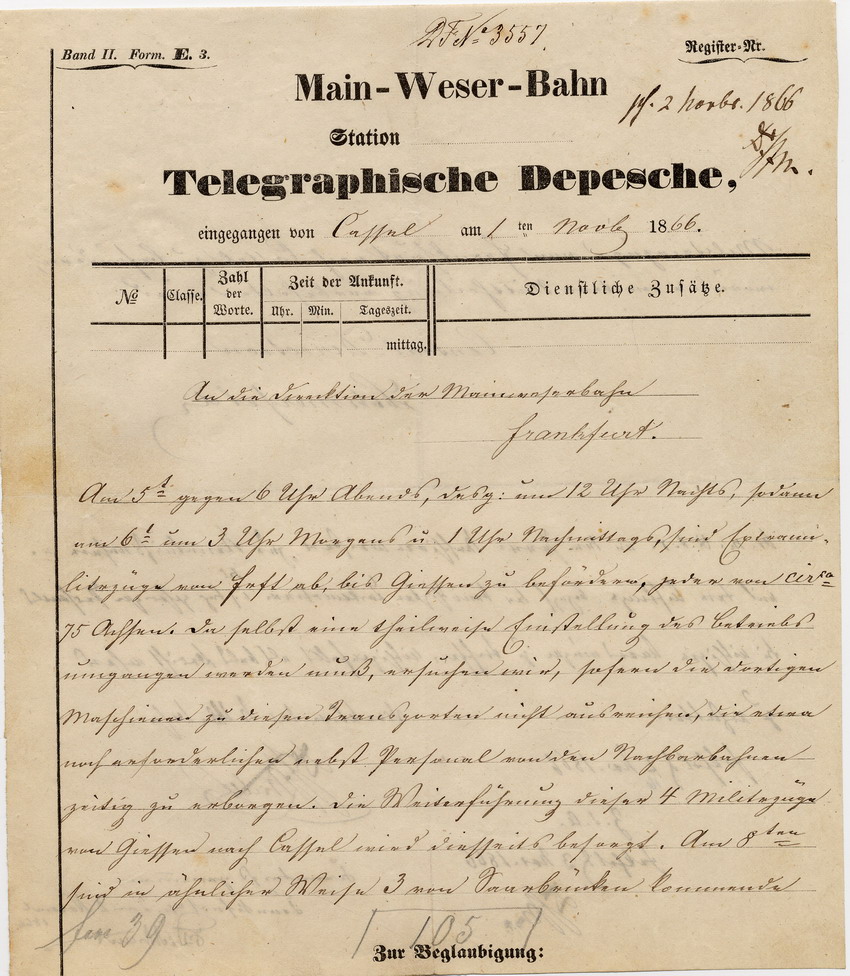 DF No 3557.
Band II. Form. E. 3.
Register-Nr.
Main-Weser-Bahn
pf. 2 Novbr. 1866
Station
Telegraphische Depesche,
eingegangen von Cassel am 1 ten Novb 1866.
No Classe. Zahl der Worte. Zeit der Ankunft. Dienstliche Zusätze.
Uhr. Min. Tageszeit.
mittag.
An die Direktion der Mainweserbahn
Frankfurt.
Am 5t gegen 6 Uhr Abends, desg: um 12 Uhr Nachts, sodann
am 6t um 3 Uhr Morgens u 1 Uhr Nachmittags, sind Extrami-
litrzüge von Frft ab, bis Giessen zu befördern, jeder von circa
75 Achsen. Da selbst eine theilweise Einstellung des Betriebs
umgangen werden muß, ersuchen wir, sofern die dortigen
Maschienen zu diesen Transporten nicht ausreichen, die etwa
noch erforderlichen nebst Personal von den Nachbarbahnen
zeitig zu erborgen. Die Weiterführung dieser 4 Militrzüge
von Giessen nach Cassel wird diesseits besorgt. Am 8ten
sind in ähnlicher Weise 3 von Saarbrücken kommende
39 105
Zur Beglaubigung: